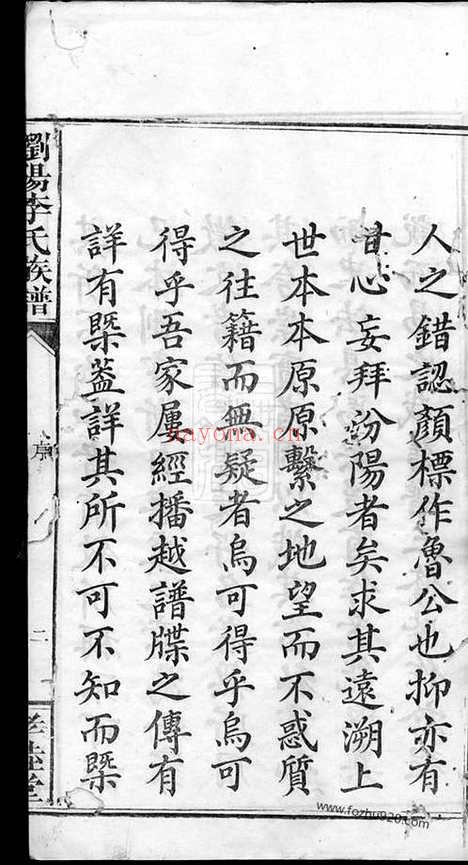 人之錯認顏標作魯公也抑亦有
昔心妄拜汾陽者矣求其遠溯上
世本本原原繫之地望而不惑質
之往籍而無疑者烏可得乎烏可
得乎吾家屢經播越譜牒之傳有
詳有槩葢詳其所不可不知而槩
瀏陽李氏族譜
序
二
堂
nayona.cn
www.fozhu920.com